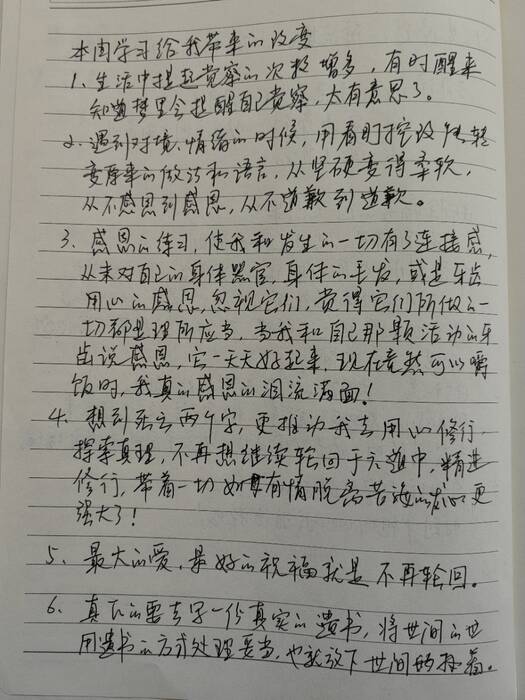 本周学习给我带来的改变
1、生活中提起觉察的次数增多，有时醒来
知道梦里会提醒自己觉察，太有意思了。
2、遇到对境、情绪的时候，用看时控改
变原来的做法和语言，从坚硬变得柔软，
从不感恩到感恩，从不道歉到道歉。
3、感恩的练习，使我和发生的一切有了连接感，
从未对自己的身体器官，身体的毛发，或是牙齿
用心的感恩，忽视它们，觉得它们所做的一
切都是理所应当，当我和自己那颗活动的牙
齿说感恩，它一天天好起来，现在竟然可以嚼
饭时，我真的感恩的泪流满面！
4、想到死亡两个字，更推动我去用心修行，
探索真理，不再想继续轮回于六道中，精进
修行，带着一切如母有情脱离苦海的发心更
强大了！
5、最大的爱，最好的祝福就是不再轮回。
6、真正的要去写一份真实的遗书，将世间的世
用遗书的方式处理妥当，也就放下世间的执着。